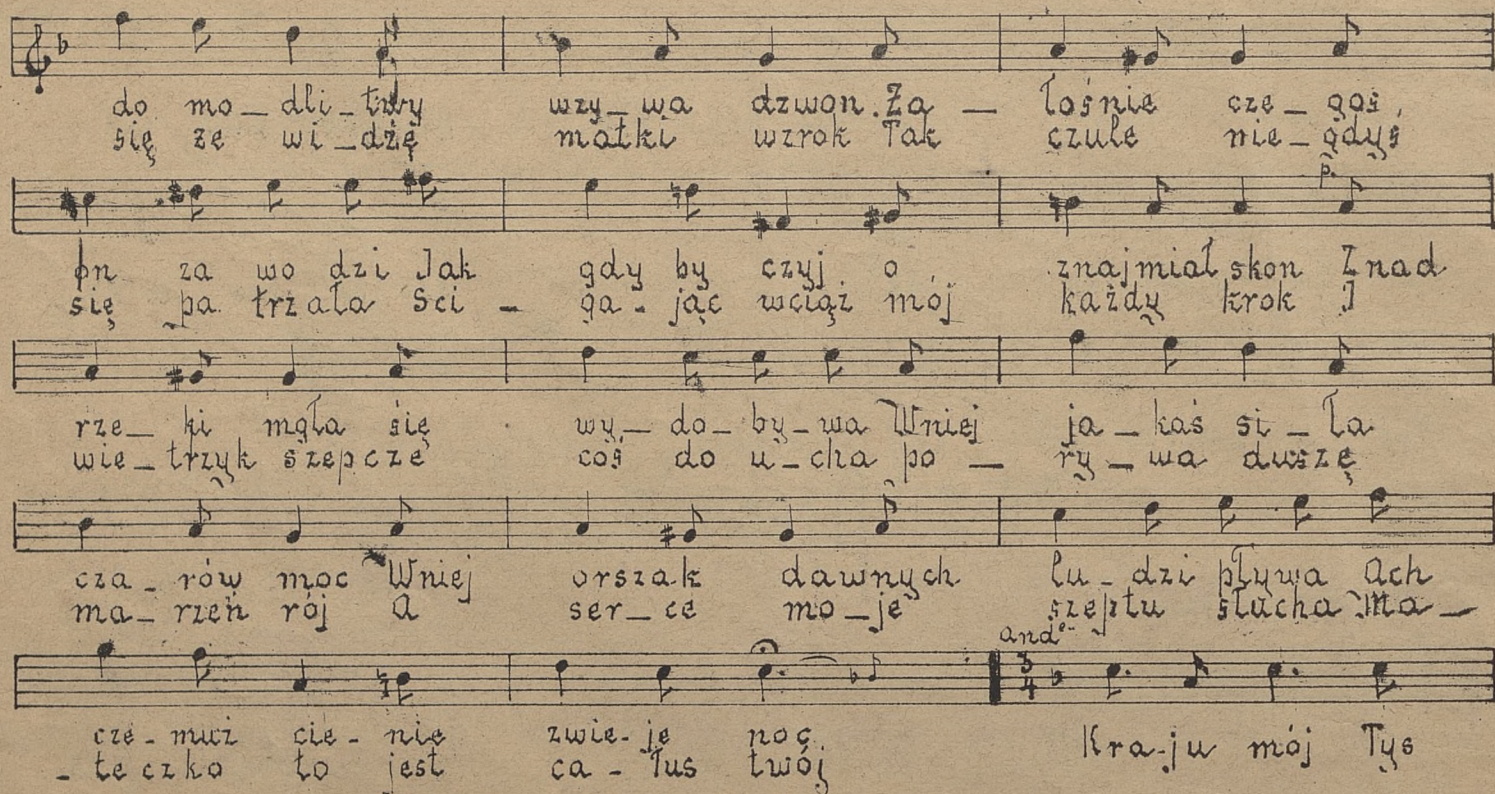 do mo_dli_twy wzy_wa dzwon. Ża _ łośnie cze_goś,
się że wi_dzę matki wzrok Tak czule nie_gdyś
p.
on za wo dzi Jak gdy by czyj o znajmiał skon Z nad
się pa trzała Ści _ ga_jąc wciąż mój każdy krok I
rze_ki mgła się wy_do_by_wa W niej ja_kaś si_ła
wie_trzyk szepcze coś do u_cha po _ ry_wa duszę
cza_rów moc W niej orszak dawnych lu_dzi pływa Ach
ma_rzeń rój A ser_ce mo_je szeptu słucha Ma_
andᵉ
3
4
cze_muż cie_nie zwie_je noc Kra_ju mój Tyś
_teczko to jest ca_łus twój